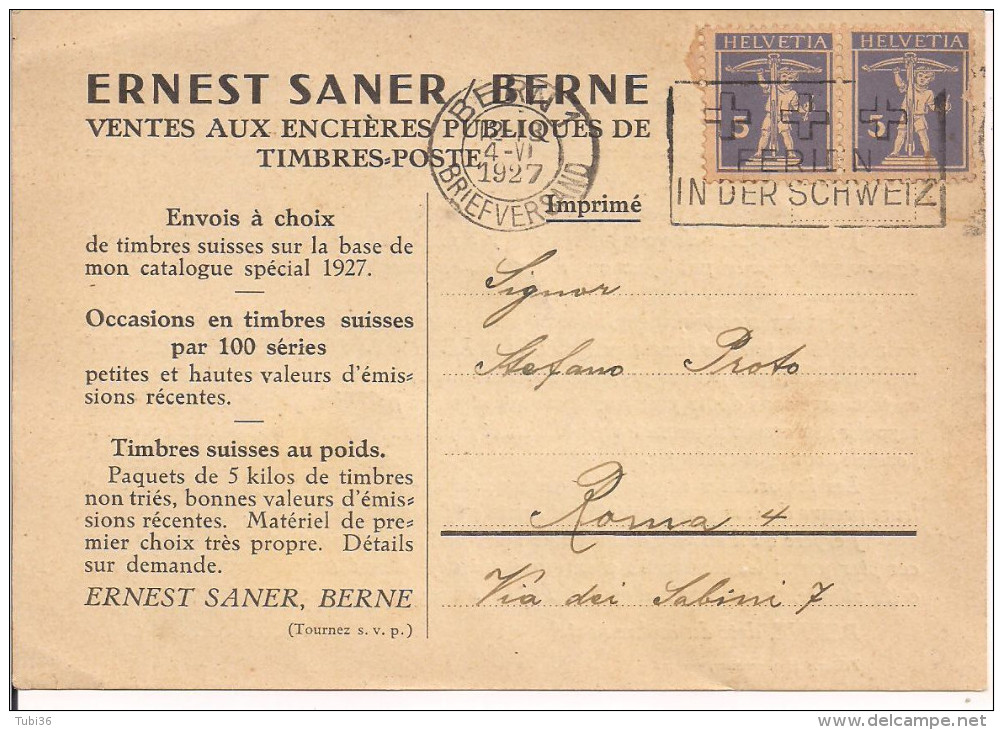 ERNEST SANER / BERNE
VENTES AUX ENCHÈRES PUBLIQUES DE
TIMBRES-POSTE
Envois à choix
de timbres suisses sur la base de
mon catalogue spécial 1927.
Occasions en timbres suisses
par 100 séries
petites et hautes valeurs d'émis-
sions récentes.
Timbres suisses au poids.
Paquets de 5 kilos de timbres
non triés, bonnes valeurs d'émis-
sions récentes. Matériel de pre-
mier choix très propre. Détails
sur demande.
ERNEST SANER, BERNE
(Tournez s. v. p.)
4-VI
1927
BRIEFVERSAND
HELVETIA
5
HELVETIA
5
FERIEN
IN DER SCHWEIZ
Imprimé
Signor
Stefano Proto
Roma 4
Via dei Sabini 7
Tubi36
www.delcampe.net